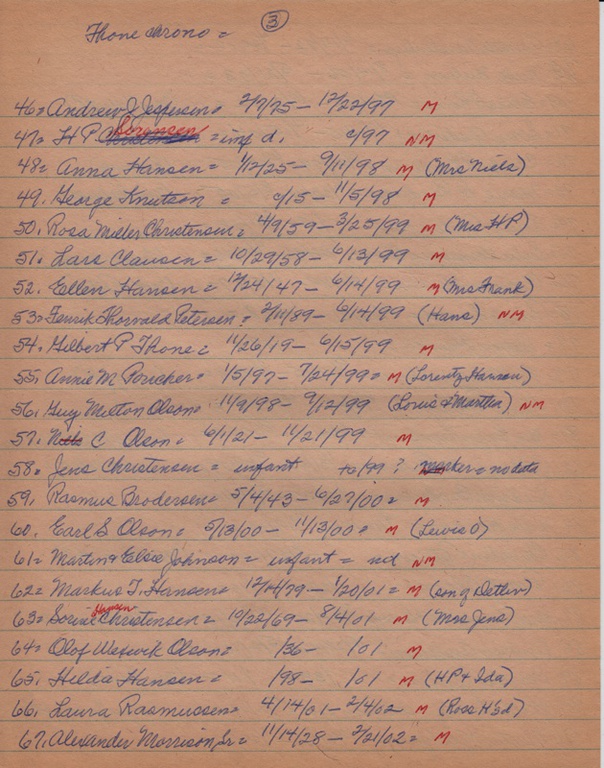 3
Thone chrono =
46= Andrew J Jespersen= 2/7/75 - 12/22/97 M
47= H P Sorensen = inf d. c/97 NM
48= Anna Hansen = 1/12/25 - 9/11/98 M (Mrs Niels)
49. George Knutson = c/15 - 11/5/98 M
50. Rosa Miller Christensen = 4/9/59 - 3/25/99 M (Mrs HP)
51. Lars Clausen = 10/29/58 - 6/13/99 M
52. Ellen Hansen = 12/24/47 - 6/14/99 M (Mrs Frank)
53= Henrik Thorvald Petersen = 2/11/89 - 6/14/99 (Hans) NM
54. Gilbert P Thone = 11/26/19 - 6/15/99 M
55. Annie M = 1/5/97 - 7/24/99 = M (Lorentz Hansen)
56. Guy Milton Olson= 11/9/98 - 9/12/99 (Louis & Martha) NM
57. C Olson = 6/1/21 - 11/21/99 M
58= Jens Christensen = infant to/99 ? marker = no data
59. Rasmus Brodersen= 5/4/43 - 6/27/00 = M
60. Earl S Olson = 5/13/00 - 11/13/00 = M (Lewis O)
61= Martin & Elsie Johnson = infant = nd NM
62= Markus T. Hansen= 12/14/79 - 1/20/01 = M (son of Detlev)
63= Sorine Hansen Christensen = 10/22/69 - 8/4/01 M (Mrs Jens)
64= Olof Olson= /36 - /01 M
65. Hilda Hansen = /98 - /01 M (HP & Ida)
66. Laura Rasmussen= 4/14/01 - 2/4/02 M (Ross H'sd)
67. Alexander Morrison, Sr = 11/14/28 - 2/21/02 = M